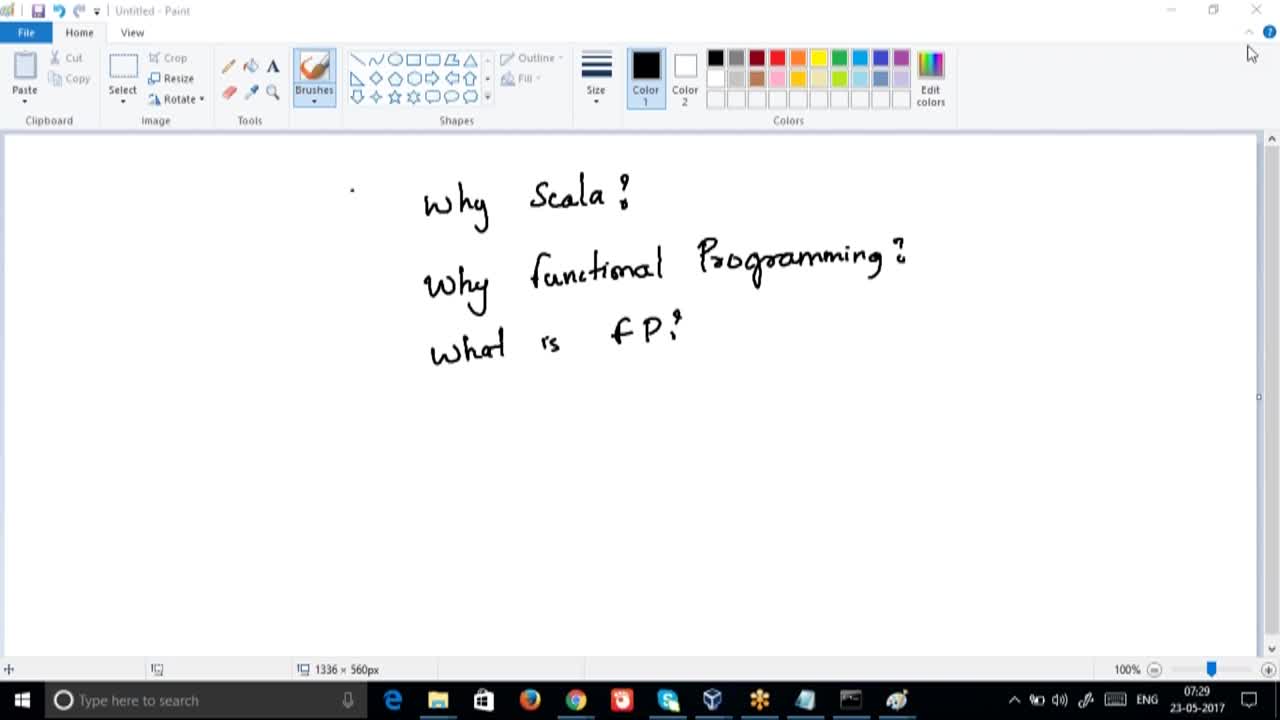 Untitled - Paint
File Home View
Paste
Cut
Copy
Clipboard
Select
Crop
Resize
Rotate
Image
Tools
Brushes
Outline
Fill
Shapes
Size
Color 1
Color 2
Edit colors
Colors
Why Scala?
Why functional Programming?
What is FP?
1336 × 560px
100%
Type here to search
ENG
07:29
23-05-2017